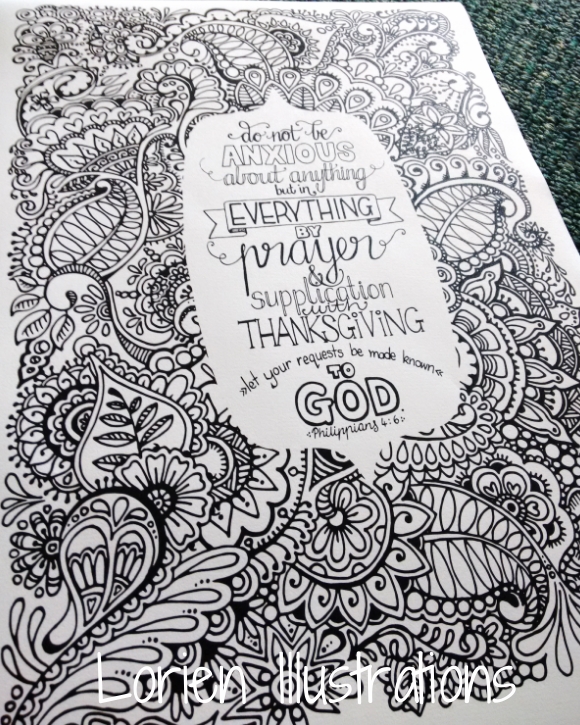 do not be
ANXIOUS
about anything
but in
EVERYTHING
BY
prayer
&
supplication
with
THANKSGIVING
»let your requests be made known«
TO
GOD.
Philippians 4:6
Lorien Illustrations